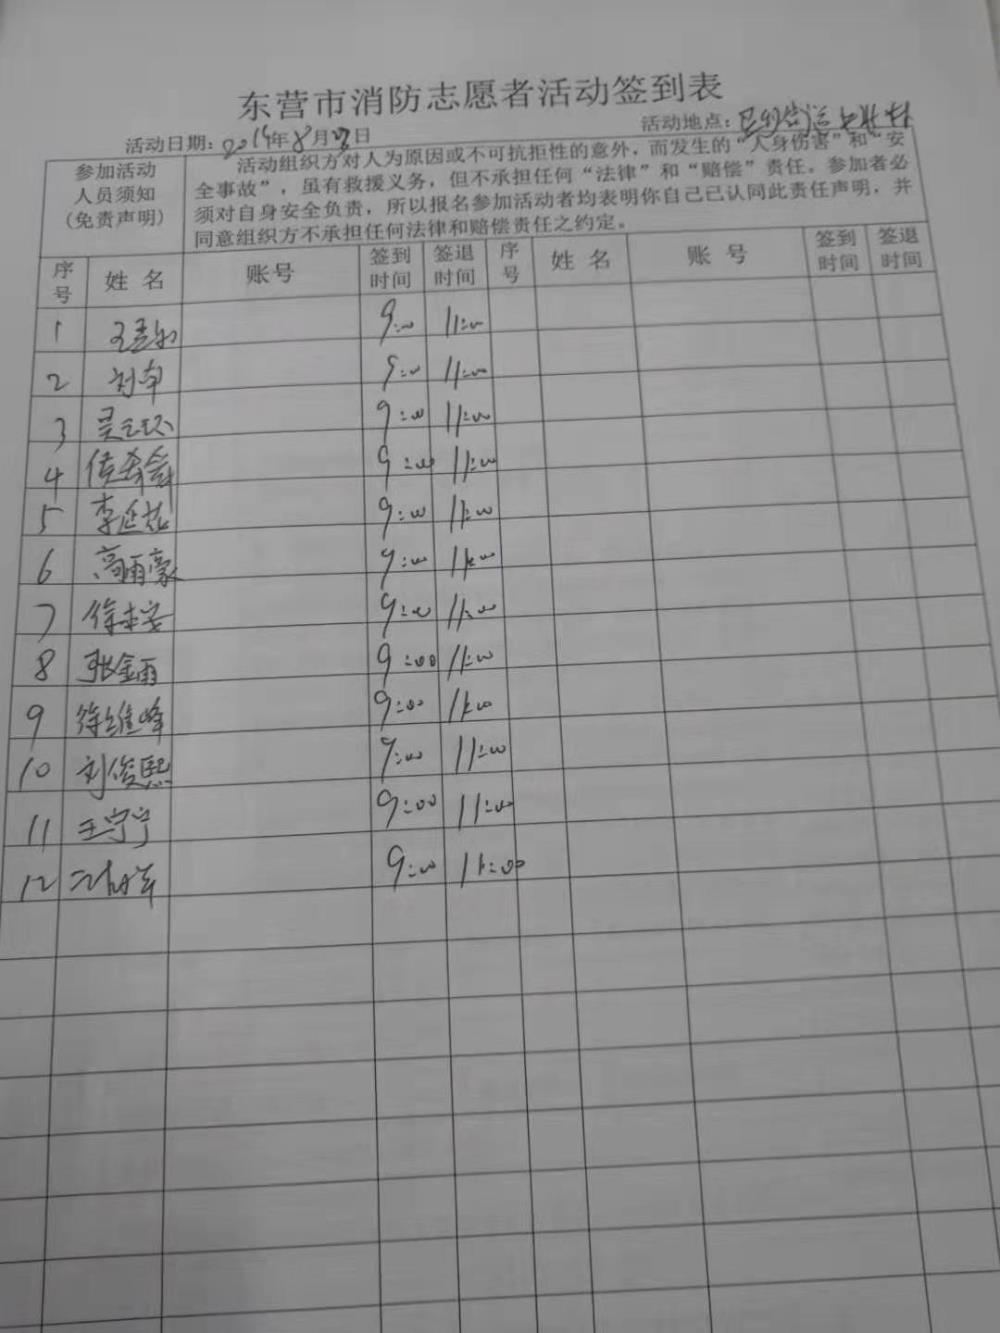 东营市消防志愿者活动签到表
活动日期：2019年8月 日 活动地点：
参加活动人员须知(免责声明)
活动组织方对人为原因或不可抗拒性的意外，而发生的“人身伤害”和“安
全事故”，虽有救援义务，但不承担任何“法律”和“赔偿”责任。参加者必
须对自身安全负责，所以报名参加活动者均表明你自己已认同此责任声明，并
同意组织方不承担任何法律和赔偿责任之约定。
序号 姓名 账号 签到时间 签退时间 序号 姓名 账号 签到时间 签退时间
1 9:00 11:00
2 刘南 9:00 11:00
3 9:00 11:00
4 9:00 11:00
5 李延 9:00 11:00
6 高雨豪 9:00 11:00
7 徐 9:00 11:00
8 张金雨 9:00 11:00
9 徐维峰 9:00 11:00
10 刘俊熙 9:00 11:00
11 王宁宁 9:00 11:00
12 9:00 11:00